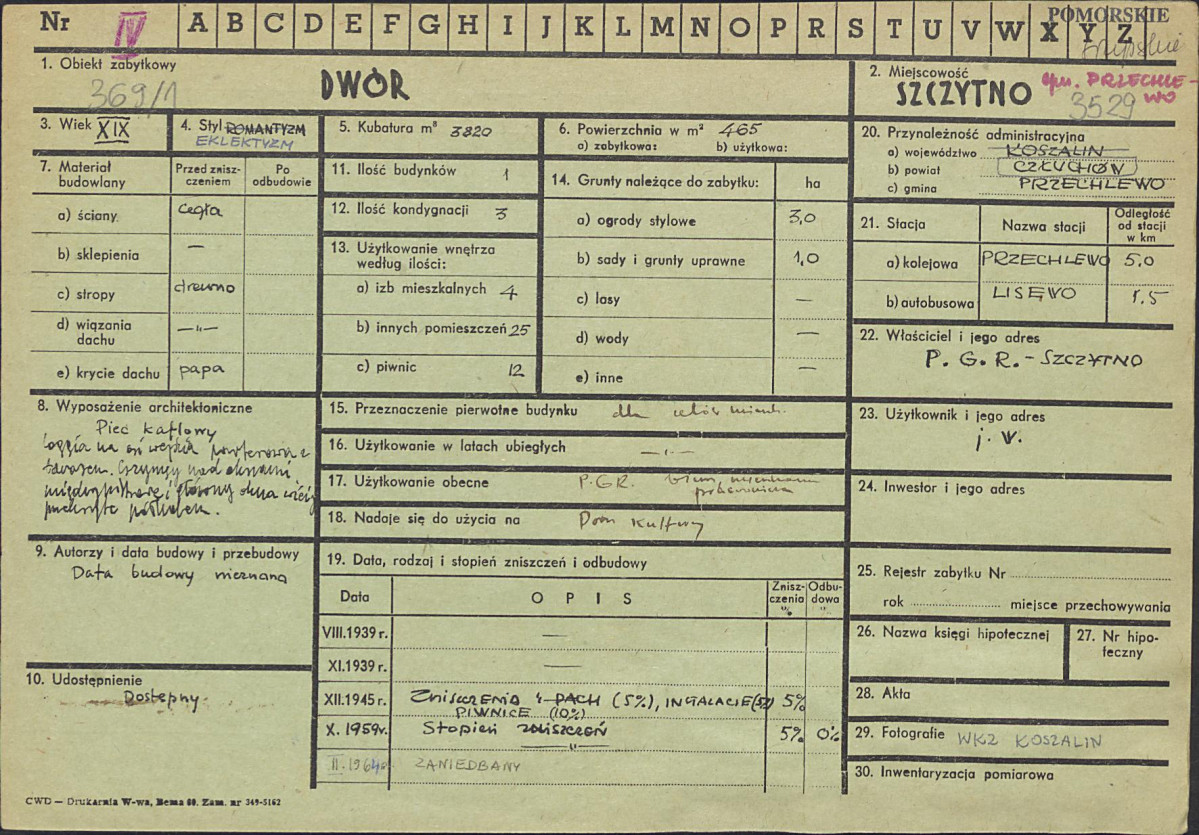 Nr IV A B C D E F G H I J K L M N O P R S T U V W X Y Z
POMORSKIE
1. Obiekt zabytkowy
369/1
DWÓR
2. Miejscowość
SZCZYTNO gm. PRZECHLE-
WO
3529
3. Wiek XIX
4. Styl ROMANTYZM
EKLEKTYZM
5. Kubatura m³ 3820
6. Powierzchnia w m² 465
a) zabytkowa: b) użytkowa:
7. Materiał budowlany
Przed znisz-
czeniem
Po
odbudowie
a) ściany cegła
b) sklepienia —
c) stropy drewno
d) wiązania
dachu —"—
e) krycie dachu papa
8. Wyposażenie architektoniczne
Piec kaflowy
loggia na osi wejścia
tarasem. Gzymsy nad oknami
9. Autorzy i data budowy i przebudowy
Data budowy nieznana
10. Udostępnienie
Dostępny.
11. Ilość budynków 1
12. Ilość kondygnacji 3
13. Użytkowanie wnętrza
według ilości:
a) izb mieszkalnych 4
b) innych pomieszczeń 25
c) piwnic 12
14. Grunty należące do zabytku: ha
a) ogrody stylowe 3,0
b) sady i grunty uprawne 1,0
c) lasy —
d) wody —
e) inne —
15. Przeznaczenie pierwotne budynku dla celów mieszk.
16. Użytkowanie w latach ubiegłych —"—
17. Użytkowanie obecne P.G.R.
18. Nadaje się do użycia na Dom Kultury
19. Data, rodzaj i stopień zniszczeń i odbudowy
Data
O P I S
Znisz-
czenia
%
Odbu-
dowa
"
VIII.1939 r. —
XI.1939 r. —
XII.1945 r. ZNISZCZENIA: DACH (5%), INSTALACJE (5%) 5%
PIWNICE (10%)
X. 1959r. Stopień zniszczeń 5% 0%
—"—
II.1964r. ZANIEDBANY
20. Przynależność administracyjna
a) województwo KOSZALIN
b) powiat CZŁUCHÓW
c) gmina PRZECHLEWO
21. Stacja
Nazwa stacji
Odległość
od stacji
w km
a) kolejowa PRZECHLEWO 5.0
b) autobusowa LISEWO 1.5
22. Właściciel i jego adres
P. G. R. - SZCZYTNO
23. Użytkownik i jego adres
j. w.
24. Inwestor i jego adres
25. Rejestr zabytku Nr
rok miejsce przechowywania
26. Nazwa księgi hipotecznej
27. Nr hipo-
teczny
28. Akta
29. Fotografie WKZ KOSZALIN
30. Inwentaryzacja pomiarowa
CWD — Drukarnia W-wa, Bema 60. Zam. nr 349-5162